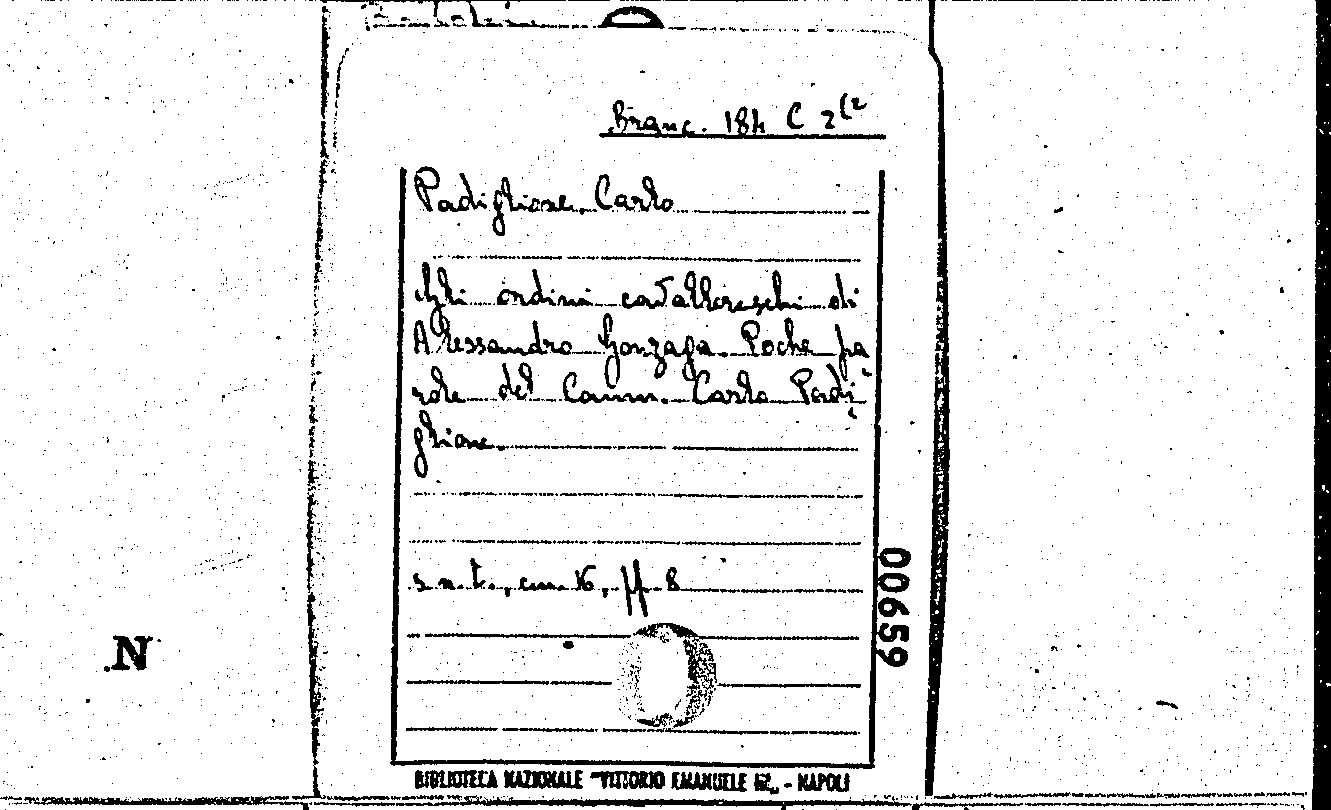 Branc. 184 C 2(2
Padiglione, Carlo
Gli ordini cavallereschi di
Alessandro Gonzaga. Poche pa-
role del Comm. Carlo Padi-
glione.
s.n.t., cm 16, pp. 8
00659
N
BIBLIOTECA NAZIONALE "VITTORIO EMANUELE III„ - NAPOLI